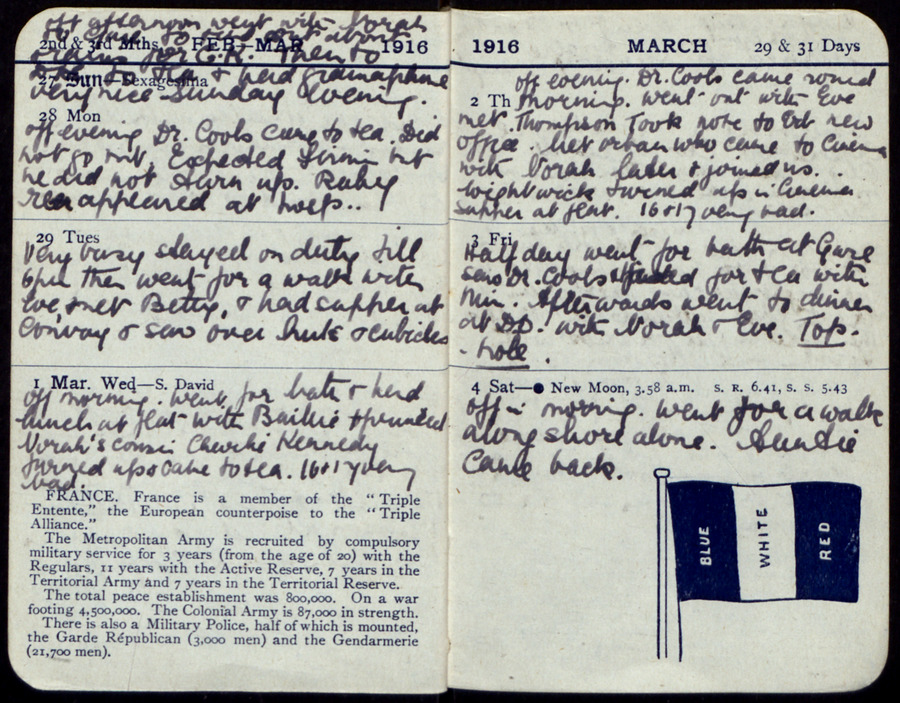 off afternoon went with Norah
2nd & 3rd Mths. FEB—MAR 1916
for C.R. Then to
27 Sun—Sexagesima
tea & had gramaphone
very nice Sunday evening.
28 Mon
off evening Dr. Cools came to tea. Did
not go out. Expected but
he did not turn up. Ruby
reappeared at
29 Tues
Very busy stayed on duty till
6pm then went for a walk with
Eve, met Betty, & had supper at
Convoy & saw over huts & cubicles
1 Mar. Wed—S. David
off morning. Went for bath & had
lunch at flat with Baillie &
Norah's cousin Charlie Kennedy
turned up & came to tea. 16 & 17 very
bad.
FRANCE. France is a member of the "Triple
Entente," the European counterpoise to the "Triple
Alliance."
The Metropolitan Army is recruited by compulsory
military service for 3 years (from the age of 20) with the
Regulars, 11 years with the Active Reserve, 7 years in the
Territorial Army and 7 years in the Territorial Reserve.
The total peace establishment was 800,000. On a war
footing 4,500,000. The Colonial Army is 87,000 in strength.
There is also a Military Police, half of which is mounted,
the Garde Républican (3,000 men) and the Gendarmerie
(21,700 men).
1916 MARCH 29 & 31 Days
off evening. Dr. Cools came round
2 Th morning. Went out with Eve
met Thompson Took note to new
office. Met who came to Cinema
with Norah later & joined us.
Wightwick turned up in Cinema
supper at flat. 16 & 17 very bad.
3 Fri
Half day went for bath at Gare
saw Dr. Cools for tea with
him. Afterwards went to dinner
at with Norah & Eve. Top-
-hole.
4 Sat—● New Moon, 3.58 a.m. S. R. 6.41, S. S. 5.43
off in morning. Went for a walk
along shore alone. Auntie
came back.
BLUE
WHITE
RED